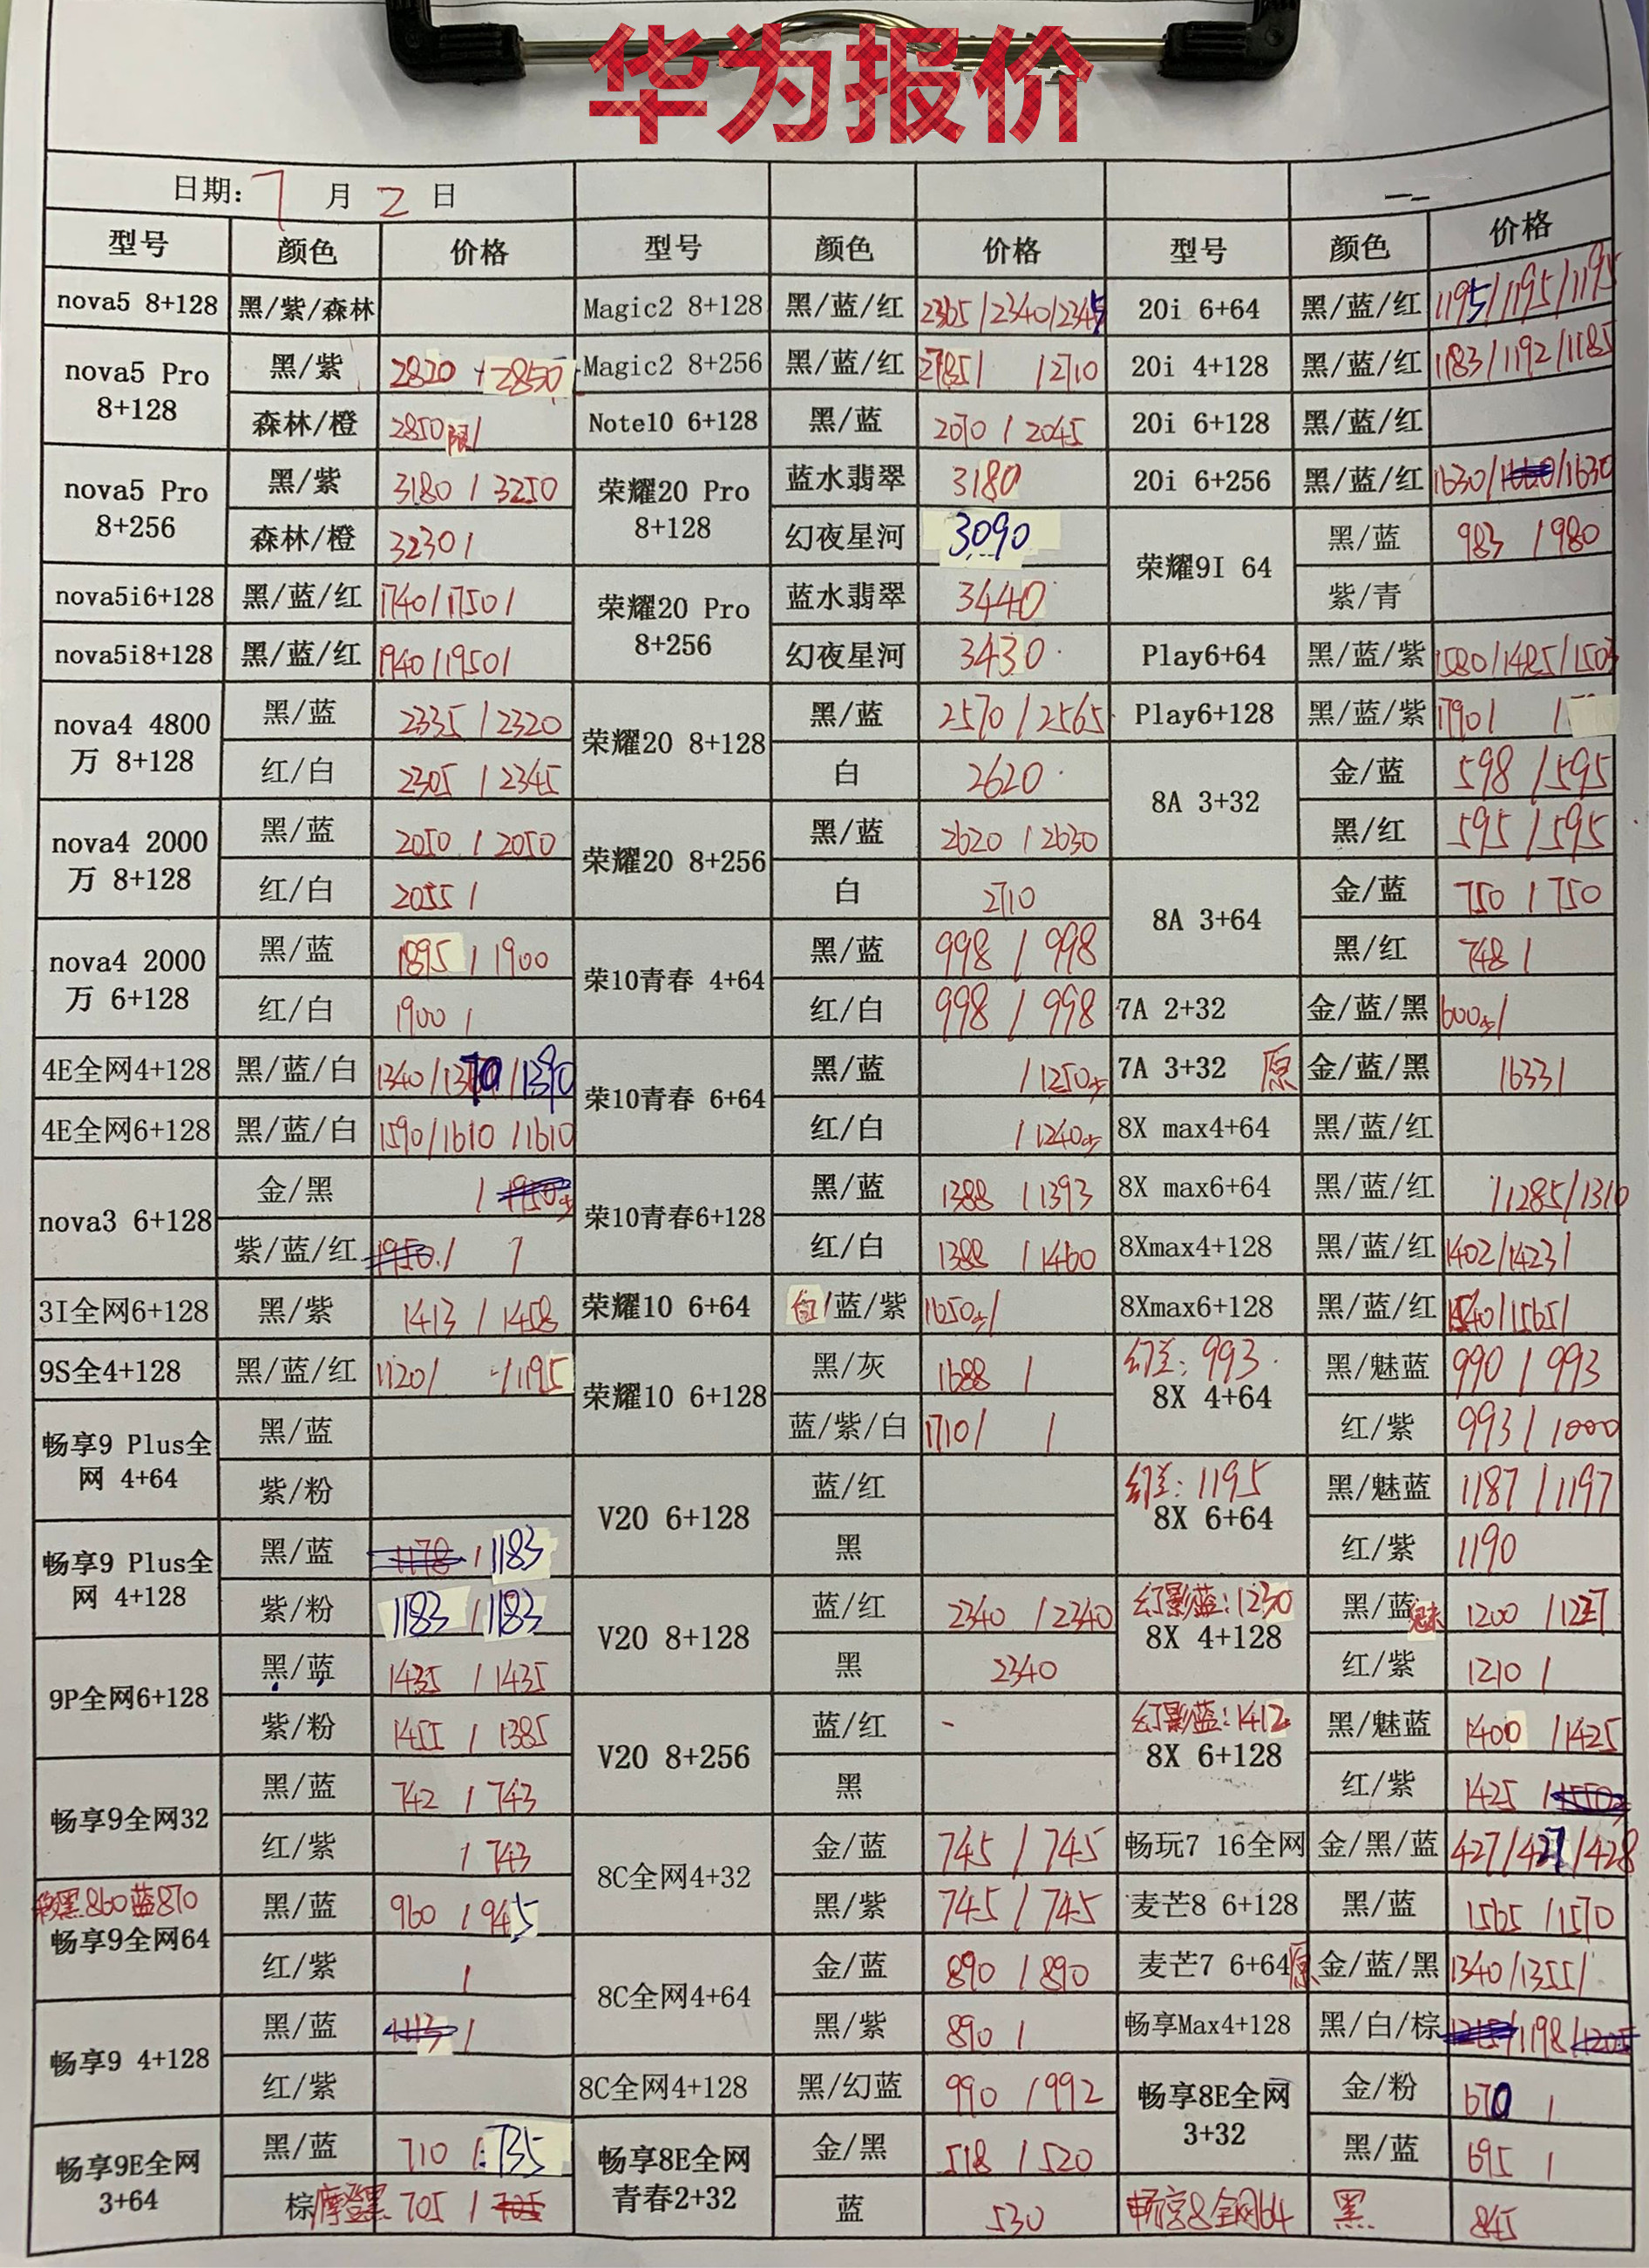 华为报价
日期: 7 月 2 日
型号 颜色 价格 型号 颜色 价格 型号 颜色 价格
nova5 8+128 黑/紫/森林 Magic2 8+128 黑/蓝/红 2365/2340/2345 20i 6+64 黑/蓝/红 1195/1195/1195
nova5 Pro 8+128 黑/紫 2820 2850 Magic2 8+256 黑/蓝/红 / /2710 20i 4+128 黑/蓝/红 1183/1192/1185
森林/橙 2850限/ Note10 6+128 黑/蓝 2070/2045 20i 6+128 黑/蓝/红
nova5 Pro 8+256 黑/紫 3180/3250 荣耀20 Pro 8+128 蓝水翡翠 3180 20i 6+256 黑/蓝/红 1630/ /1630
森林/橙 3230/ 幻夜星河 3090 荣耀9I 64 黑/蓝 983/980
nova5i6+128 黑/蓝/红 1740/1750/ 荣耀20 Pro 8+256 蓝水翡翠 3440 紫/青
nova5i8+128 黑/蓝/红 1940/1950/ 幻夜星河 3430 Play6+64 黑/蓝/紫 1580/1485/1503
nova4 4800万 8+128 黑/蓝 2335/2320 荣耀20 8+128 黑/蓝 2570/2565 Play6+128 黑/蓝/紫 1790/ /
红/白 2305/2345 白 2620 8A 3+32 金/蓝 598/595
nova4 2000万 8+128 黑/蓝 2050/2050 荣耀20 8+256 黑/蓝 2620/2630 黑/红 595/595
红/白 2055/ 白 2710 8A 3+64 金/蓝 750/750
nova4 2000万 6+128 黑/蓝 1895/1900 荣10青春 4+64 黑/蓝 998/998 黑/红 748/
红/白 1900/ 红/白 998/998 7A 2+32 金/蓝/黑 600少/
4E全网4+128 黑/蓝/白 1340/1370/1390 荣10青春 6+64 黑/蓝 /1250少 7A 3+32 原 金/蓝/黑 1633/
4E全网6+128 黑/蓝/白 1590/1610/1610 红/白 /1240少 8X max4+64 黑/蓝/红
nova3 6+128 金/黑 /1950少 荣10青春6+128 黑/蓝 1388/1393 8X max6+64 黑/蓝/红 /1285/1310
紫/蓝/红 1950/ / 红/白 1388/1400 8Xmax4+128 黑/蓝/红 1402/1423/
3I全网6+128 黑/紫 1413/1458 荣耀10 6+64 白/蓝/紫 1650少/ 8Xmax6+128 黑/蓝/红 1540/1565/
9S全4+128 黑/蓝/红 1120/ /1195 荣耀10 6+128 黑/灰 1688/ 幻影: 993 8X 4+64 黑/魅蓝 990/993
畅享9 Plus全网 4+64 黑/蓝 蓝/紫/白 1710/ / 红/紫 993/1000
紫/粉 V20 6+128 蓝/红 幻影: 1195 8X 6+64 黑/魅蓝 1187/1197
畅享9 Plus全网 4+128 黑/蓝 1178/1183 黑 红/紫 1190
紫/粉 1183/1183 V20 8+128 蓝/红 2340/2340 幻影蓝:1230 8X 4+128 黑/蓝魅 1200/1227
9P全网6+128 黑/蓝 1435/1435 黑 2340 红/紫 1210/
紫/粉 1455/1385 V20 8+256 蓝/红 - 幻影蓝:1412 8X 6+128 黑/魅蓝 1400/1425
畅享9全网32 黑/蓝 742/743 黑 红/紫 1425/
红/紫 /743 8C全网4+32 金/蓝 745/745 畅玩7 16全网 金/黑/蓝 427/427/428
移黑860蓝870 畅享9全网64 黑/蓝 960/945 黑/紫 745/745 麦芒8 6+128 黑/蓝 1565/1570
红/紫 / 8C全网4+64 金/蓝 890/890 麦芒7 6+64原 金/蓝/黑 1340/1355/
畅享9 4+128 黑/蓝 1113/ 黑/紫 890/ 畅享Max4+128 黑/白/棕 /1198/1205
红/紫 8C全网4+128 黑/幻蓝 990/992 畅享8E全网 3+32 金/粉 670/
畅享9E全网 3+64 黑/蓝 710/735 畅享8E全网 青春2+32 金/黑 518/520 黑/蓝 695/
棕摩登黑 705/705 蓝 530 畅享8全网64 黑 845